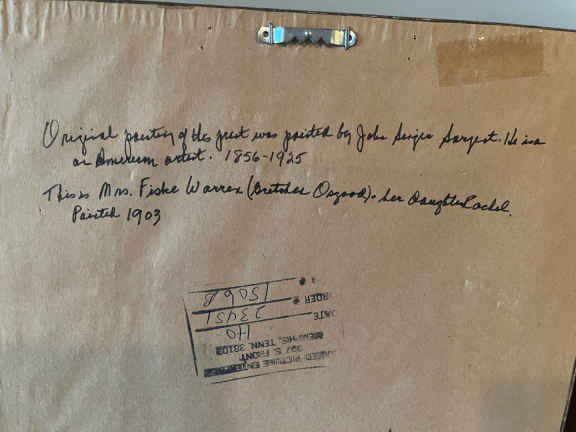 Original painting of this print was painted by John Singer Sargent. He is a
an American artist. 1856-1925
This is Mrs. Fiske Warren (Gretchen Osgood) & her daughter Rachel.
Painted 1903
PICTURE ENTER
327 S. FRONT
MEMPHIS, TENN. 38103
DATE HO
ORDER # 23451
# 1506B